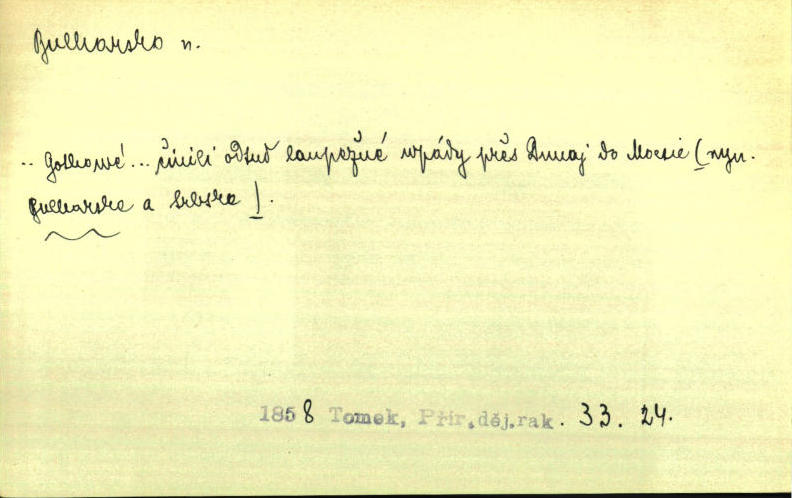 Bulharsko n.
.. Gothowé... činili odtud laupežné wpády přes Dunaj do Moesie (nyn.
Bulharska a Srbska).
1858 Tomek, Přír.děj.rak. 33. 24.